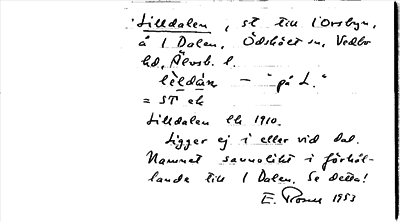 Lilldalen, st till 1 Orsbyn,
å 1 Dalen, ÖdsköLt sn, Vedbo
hd, Älvsb. l.
lèldán — "på L."
= ST ek
Lilldalen lh 1910.
Ligger ej i eller vid dal.
Namnet sannolikt i förhål-
lande till 1 Dalen. Se detta!
E. 1953